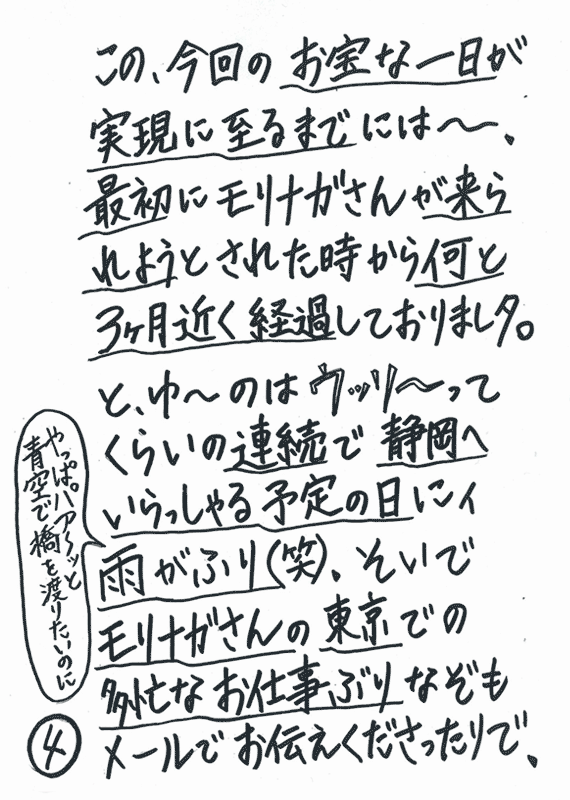 この、今回のお宝な一日が
実現に至るまでには〜、
最初にモリナガさんが来ら
れようとされた時から何と
3ヶ月近く経過しておりましタ。
と、ゆ〜のはウッソ〜って
くらいの連続で静岡へ
いらっしゃる予定の日にィ
雨がふり(笑)、そいで
モリナガさんの東京での
多忙なお仕事ぶりなぞも
メールでお伝えくださったりで、
やっぱ。ハア〜ッと
青空で橋を渡りたいのに
4